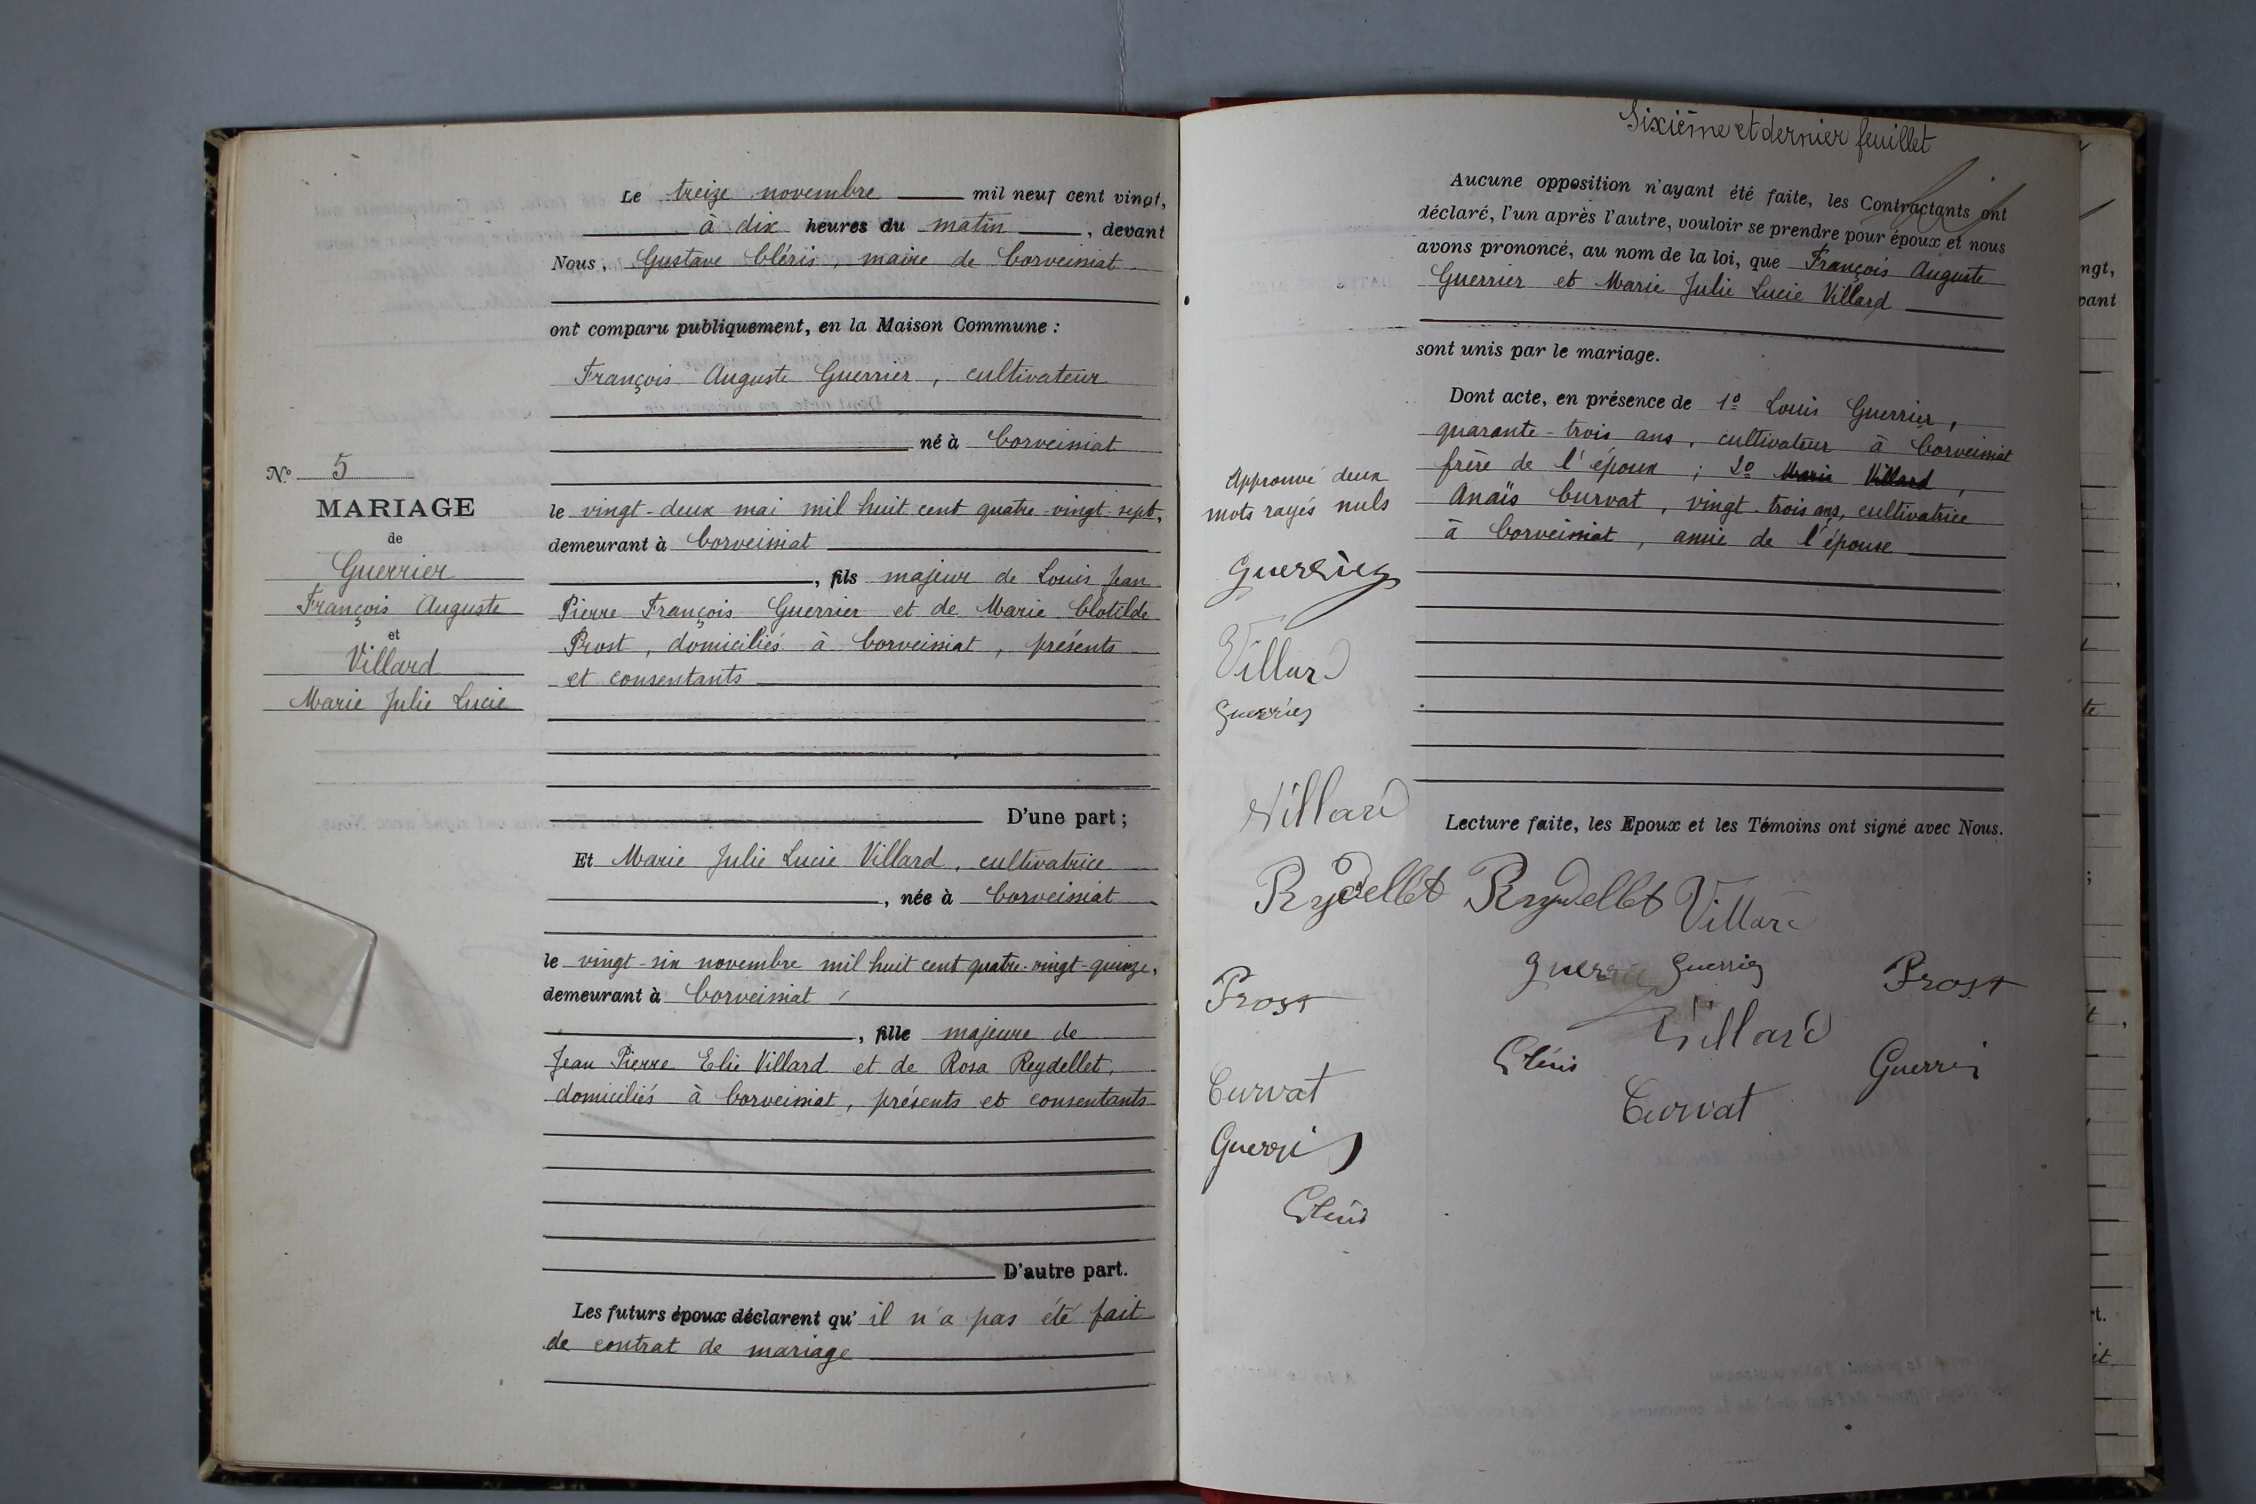 N° 5
MARIAGE
de
Guerrier
François Auguste
et
Villard
Marie Julie Lucie
Le treize novembre mil neuf cent vingt,
à dix heures du matin, devant
Nous, Gustave Cléris, maire de Corveissiat
ont comparu publiquement, en la Maison Commune :
François Auguste Guerrier, cultivateur
né à Corveissiat
le vingt-deux mai mil huit cent quatre-vingt-sept,
demeurant à Corveissiat
, fils majeur de Louis Jean
Pierre François Guerrier et de Marie Clotilde
Prost, domiciliés à Corveissiat, présents
et consentants
D'une part ;
Et Marie Julie Lucie Villard, cultivatrice
, née à Corveissiat
le vingt-six novembre mil huit cent quatre-vingt-quinze,
demeurant à Corveissiat
, fille majeure de
Jean Pierre Elie Villard et de Rosa Reydellet,
domiciliés à Corveissiat, présents et consentants
D'autre part.
Les futurs époux déclarent qu'il n'a pas été fait
de contrat de mariage
Sixième et dernier feuillet
Aucune opposition n'ayant été faite, les Contractants ont
déclaré, l'un après l'autre, vouloir se prendre pour époux et nous
avons prononcé, au nom de la loi, que François Auguste
Guerrier et Marie Julie Lucie Villard
sont unis par le mariage.
Dont acte, en présence de 1° Louis Guerrier,
quarante-trois ans, cultivateur à Corveissiat
frère de l'époux ; 2° Marie Villard,
Anaïs Curvat, vingt-trois ans, cultivatrice
à Corveissiat, amie de l'épouse
Approuvé deux
mots rayés nuls
Guerrier
Villard
Guerrier
Villard
Reydellet
Prost
Curvat
Guerrier
Cléris
Lecture faite, les Epoux et les Témoins ont signé avec Nous.
Reydellet Villard
Guerrier Guerrier Prost
Villard
Cléris Guerrier
Curvat